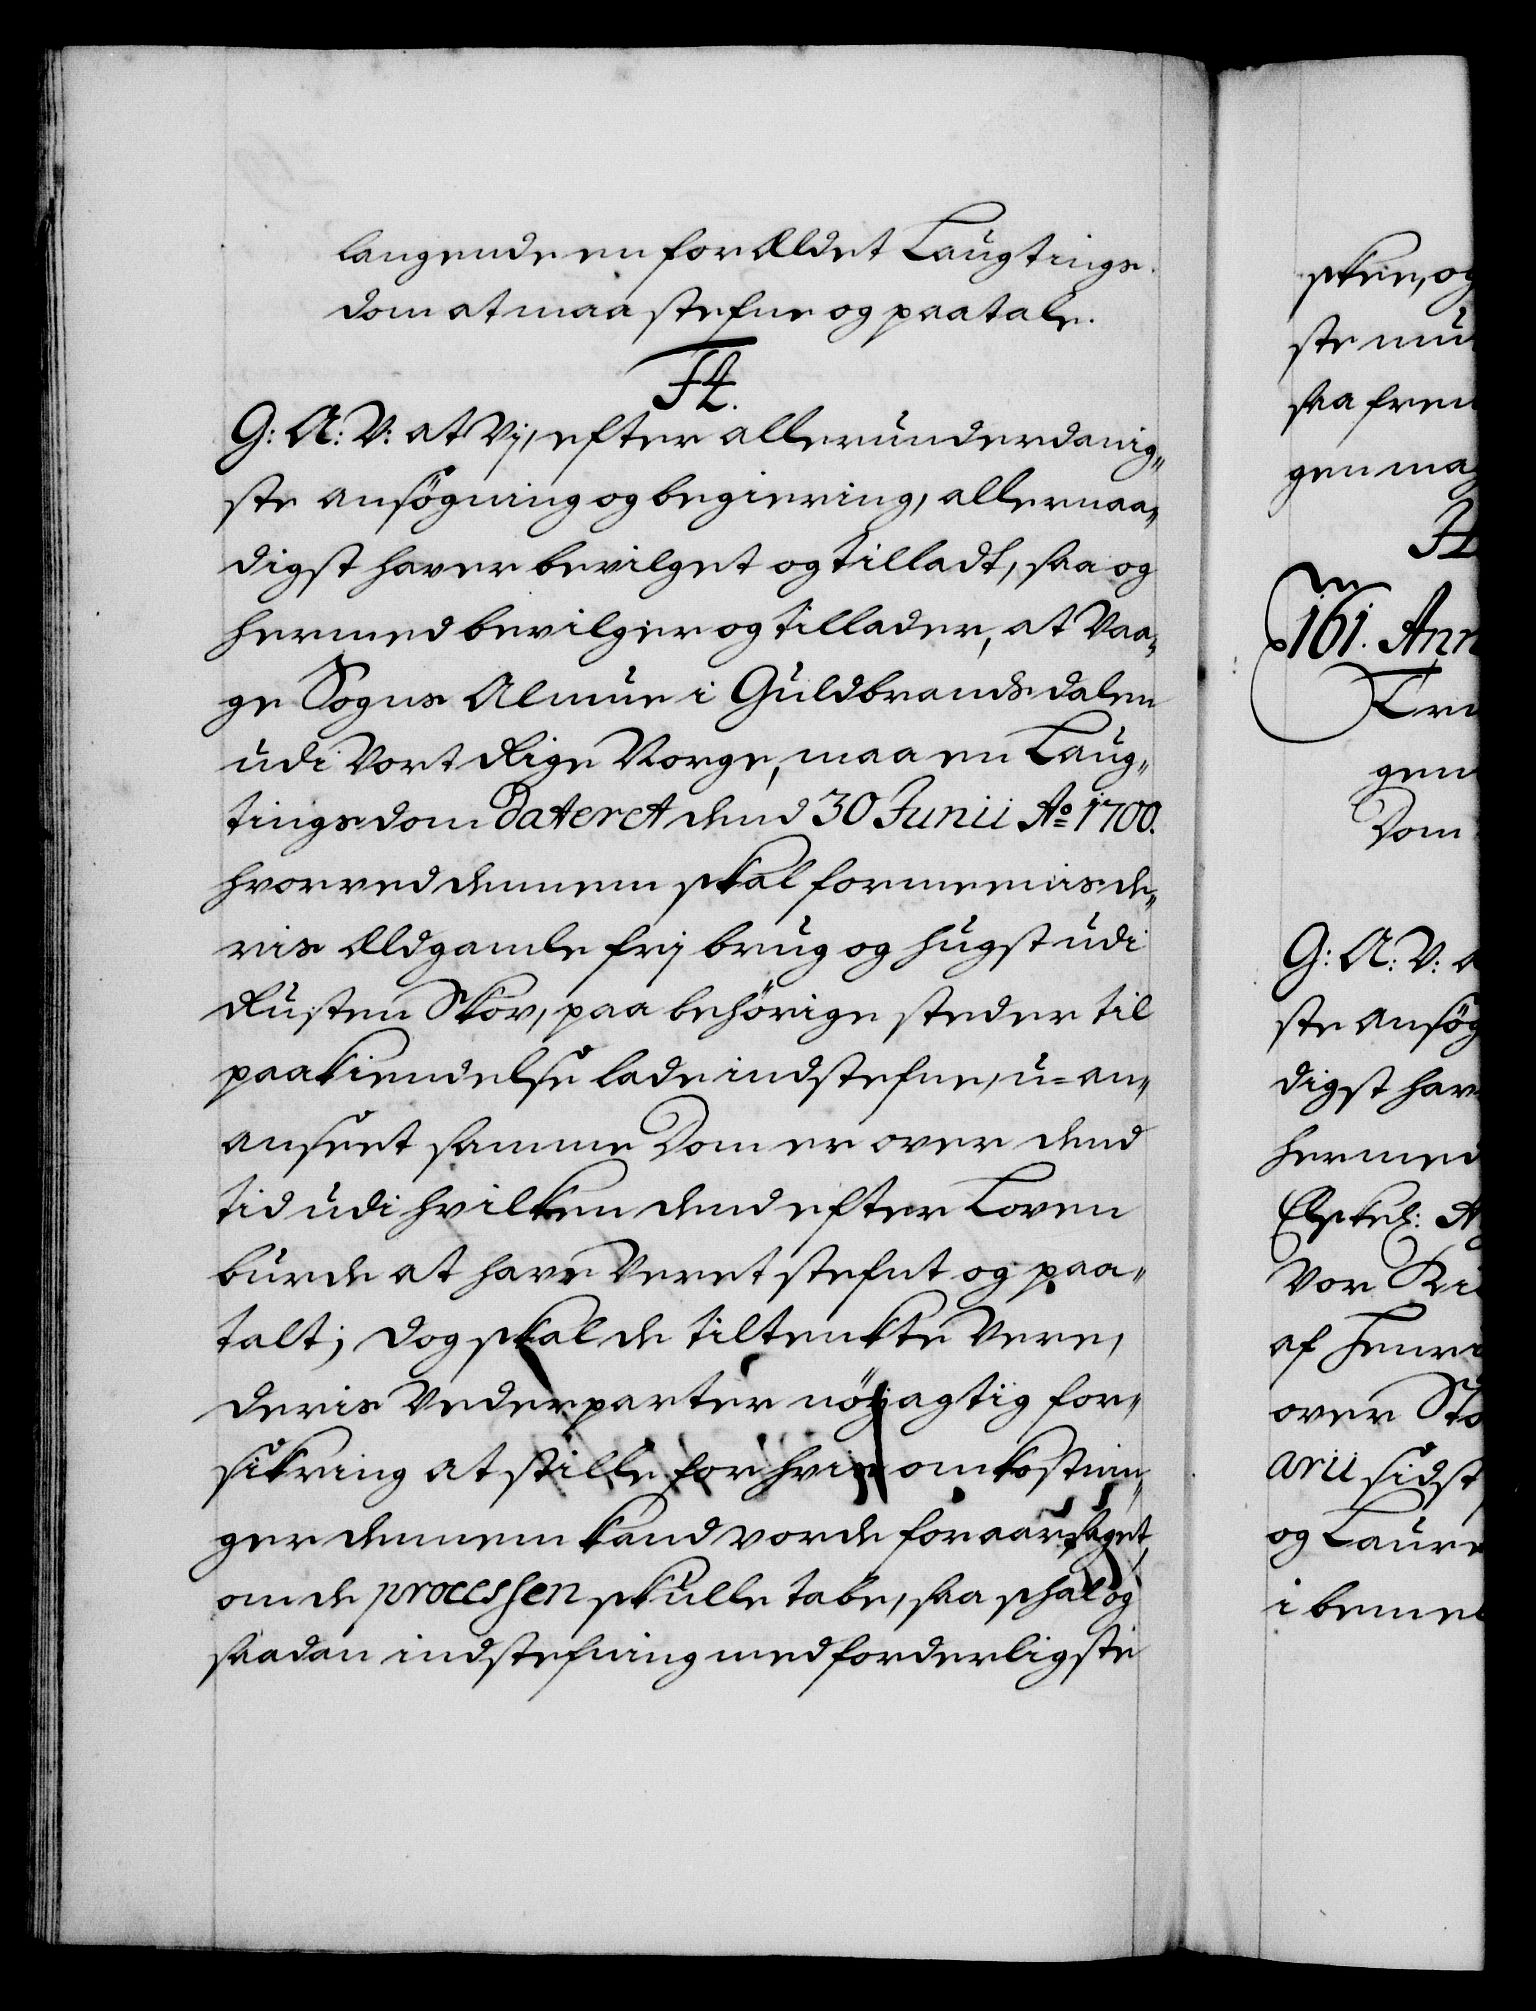 langende en forældet Laugtings-
dom at maa stefne og paatale.
F4.
G: A: V: at Vj, efter allerunderdanig„
ste ansøgning og begiering, allernaa„
digst haver bevilget og tilladt, saa og
hermed bevilger og tillader, at Vaa„
ge Sogns Almue i Guldbrandsdalen
udi Vort Rige Norge, maa en Laug„
tingsdom dateret dend 30 Junii Ao 1700.
hvorved dennem skal formeenis de„
ris ældgamle frj brug og hugst udi
Rusten Skov, paa behörige steder til
paakiendelse lade indstefne, u=an„
anseet samme Dom er over dend
tid udi hvilken dend efter Loven
burde at have Veret stefnt og paa„
talt; dog skal de tiltenkte Vere,
deris Vederparter nöjagtig for„
sikring at stille for hvis omkostnin„
ger dennem kand vorde foraarsaget,
om de processen skulle tabe, saa schal og
saadan indstefning med forderligste
skee, og
ste mu
saa frem
gen ma
161. Ann
gen
Dom
G: A: V: a
ste ansøg
digst hav
hermed
Elskel: A
Vor Ri
af Henri
over Sto
arii sidst
og Laur
i bemel